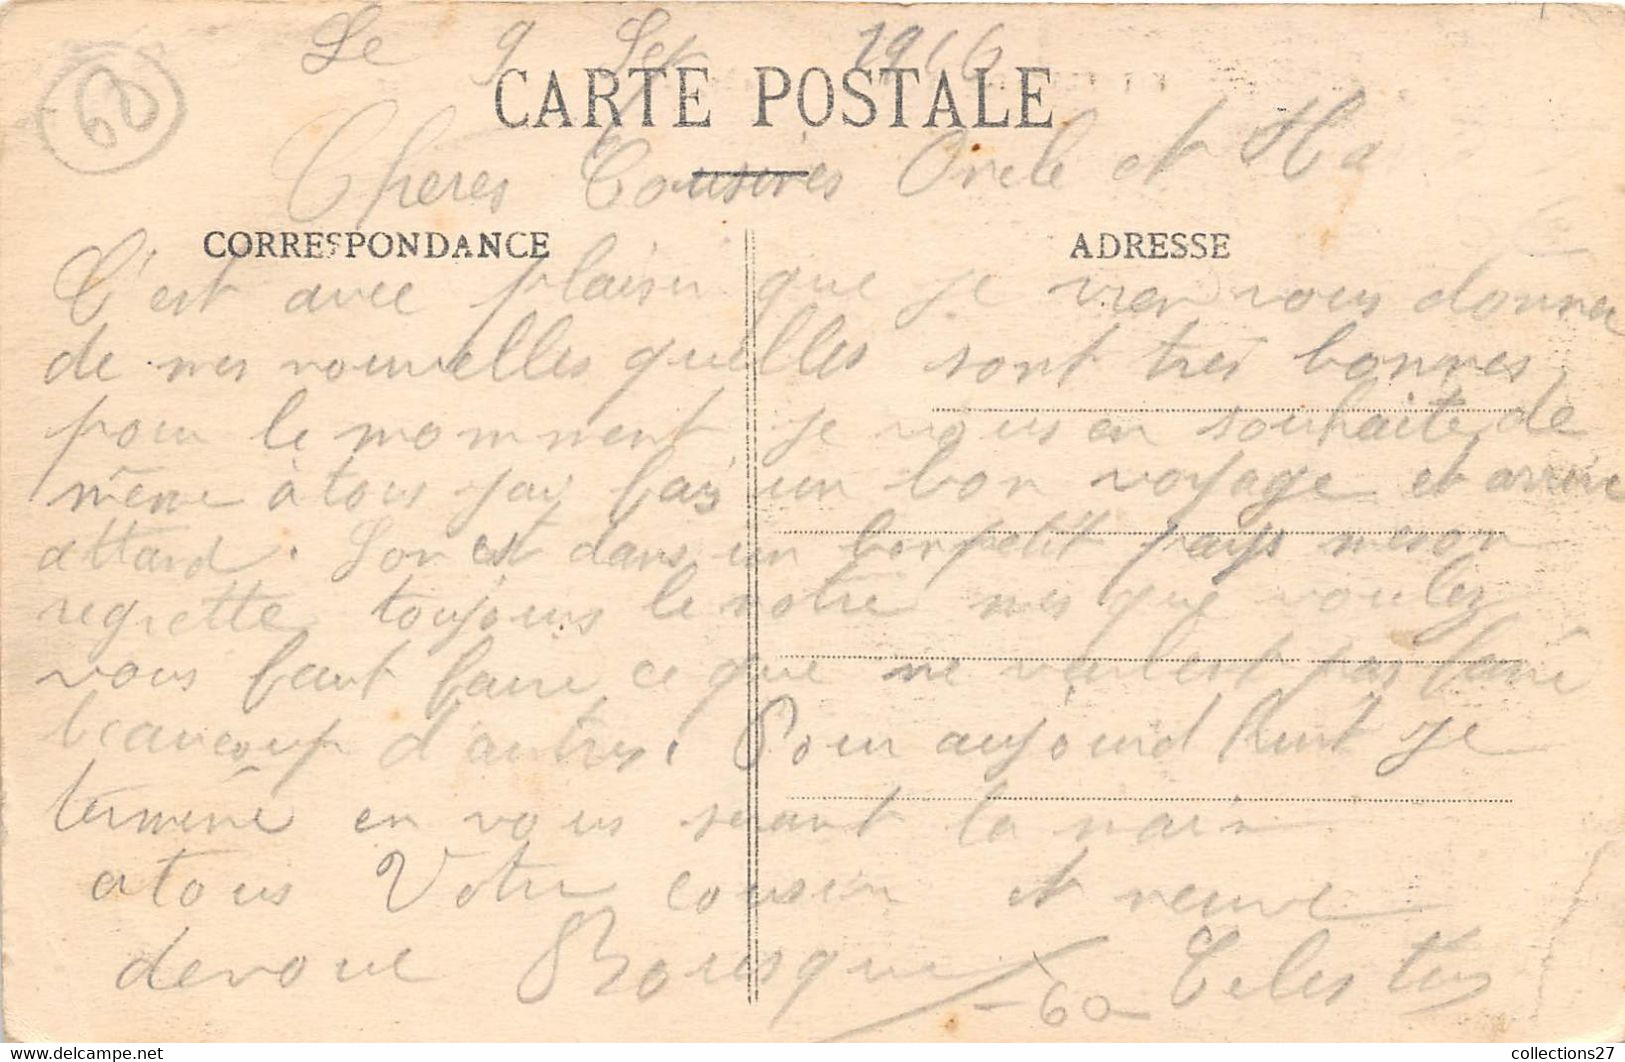 68
Le 9 Sep 1916
CARTE POSTALE
Chères Cousines Oncle et
CORRESPONDANCE
ADRESSE
C'est avec plaisir que je vien vous donner
de mes nouvelles quelles sont tres bonnes
pour le momment je vous en souhaite de
même à tous jai fais un bon voyage et arrivé
attard. Lon est dans un bon petit pays meson
regrette toujours le notre mes que voulez
vous faut faire ce que ne veulest pas faire
beaucoup d'autres. Pour aujourd huit je
terminé en vous serant la main
a tous Votre cousin et neuve
devoue Bousque Celestin
-60-
collections27